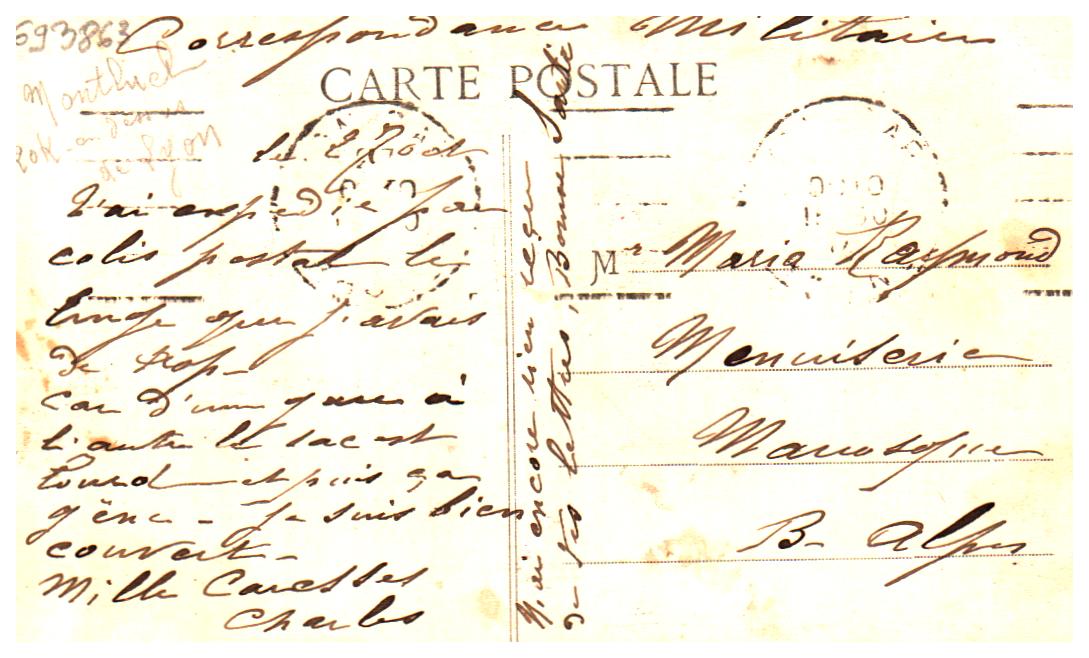 693863
Correspondance Militaire
CARTE POSTALE
Montluel
20K au dessus
de Lyon
le 2 Août
J'ai expédié par
colis postal le
linge que j'avais
de trop -
car d'une gare à
l'autre le sac est
lourd et puis ça
gêne - Je suis bien
couvert -
Mille Caresses
Charles
N'ai encore rien reçu
de tes lettres, Bonne Santé
Mr Maria Raymond
Menuiserie
Manosque
B- Alpes